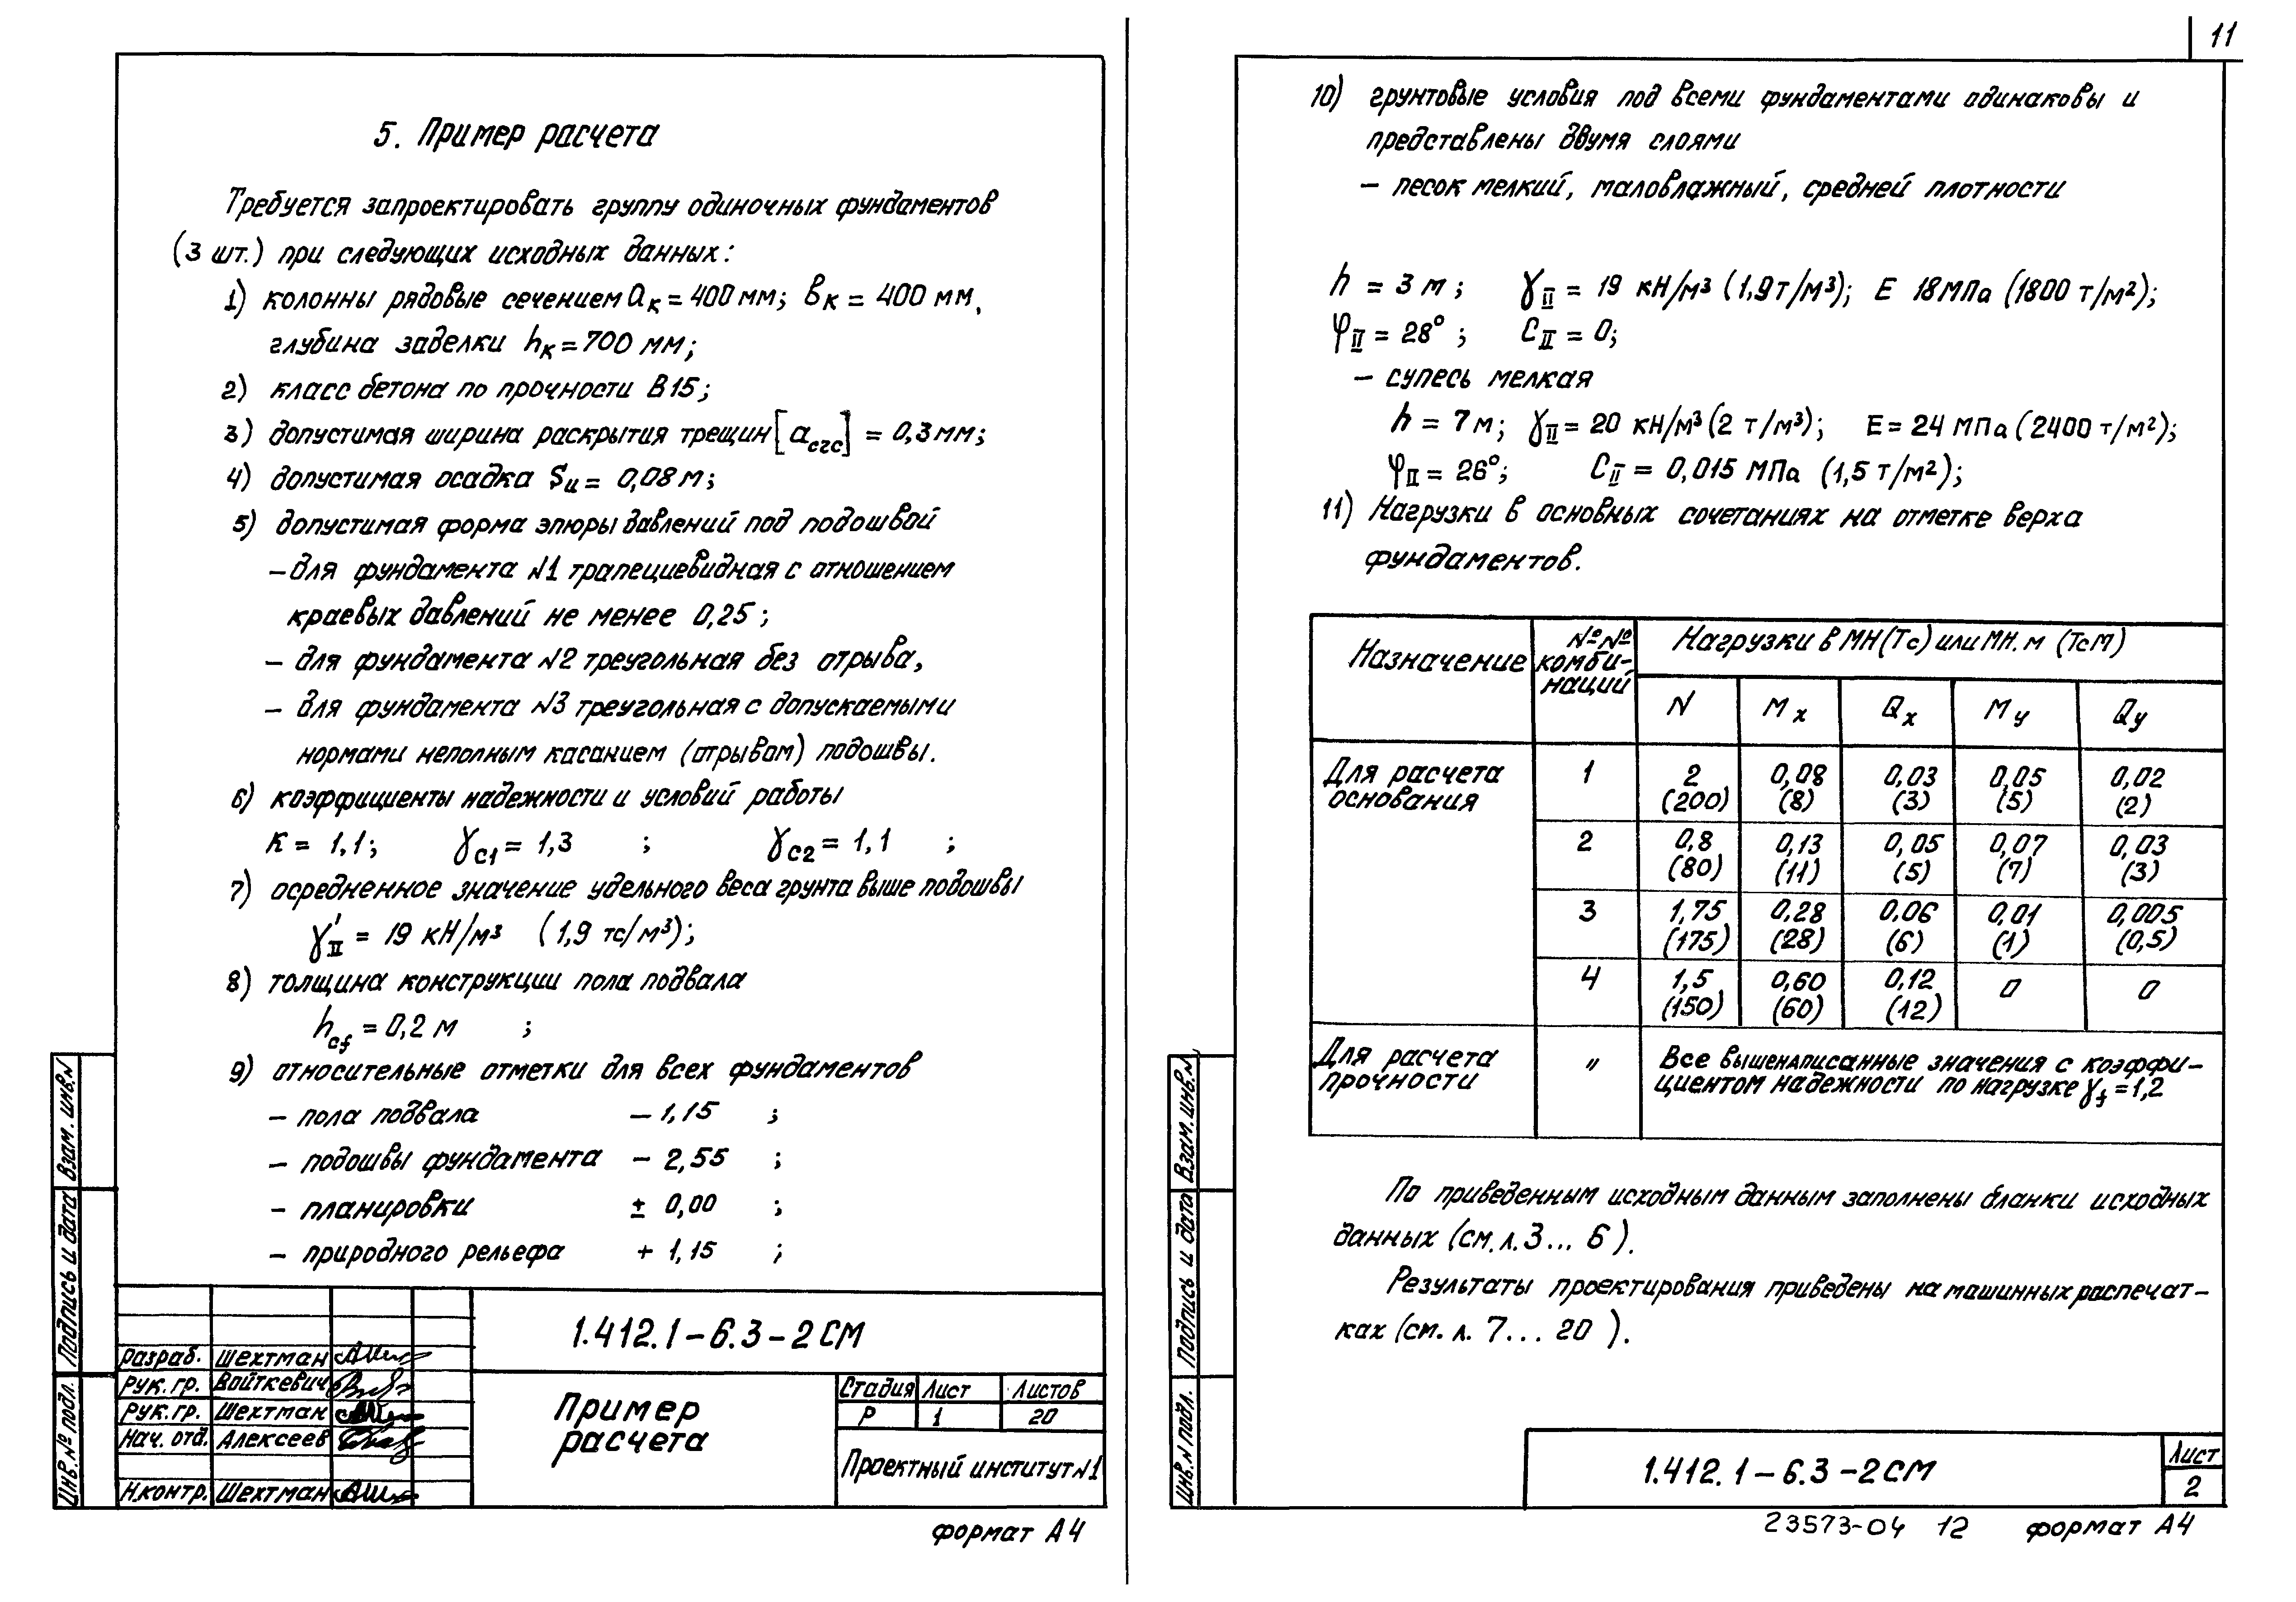 5. Пример расчета
Требуется запроектировать группу одиночных фундаментов
(3 шт.) при следующих исходных данных:
1) колонны рядовые сечением aк = 400 мм; вк = 400 мм,
глубина заделки hк = 700 мм;
2) класс бетона по прочности В15;
3) допустимая ширина раскрытия трещин [acrc] = 0,3 мм;
4) допустимая осадка Su = 0,08 м;
5) допустимая форма эпюры давлений под подошвой
- для фундамента N1 трапециевидная с отношением
краевых давлений не менее 0,25;
- для фундамента N2 треугольная без отрыва,
- для фундамента N3 треугольная с допускаемыми
нормами неполным касанием (отрывом) подошвы.
6) коэффициенты надежности и условий работы
K = 1,1; γc1 = 1,3 ; γc2 = 1,1 ;
7) осредненное значение удельного веса грунта выше подошвы
γ'II = 19 кН/м³ (1,9 тс/м³);
8) толщина конструкции пола подвала
hcf = 0,2 м ;
9) относительные отметки для всех фундаментов
- пола подвала - 1,15 ;
- подошвы фундамента - 2,55 ;
- планировки ± 0,00 ;
- природного рельефа + 1,15 ;
Взам. инв. N
Подпись и дата
Инв. № подл.
1.412.1-6.3-2СМ
Разраб. Шехтман
Рук. гр. Войткевич
Рук. гр. Шехтман
Нач. отд. Алексеев
Н.контр. Шехтман
Пример
расчета
Стадия Лист Листов
Р 1 20
Проектный институт N1
формат А4
11
10) грунтовые условия под всеми фундаментами одинаковы и
представлены двумя слоями
- песок мелкий, маловлажный, средней плотности
h = 3 м; γII = 19 кН/м³ (1,9 т/м³); E 18 МПа (1800 т/м²);
φII = 28°; CII = 0;
- супесь мелкая
h = 7 м; γII = 20 кН/м³ (2 т/м³); E = 24 МПа (2400 т/м²);
φII = 26°; CII = 0,015 МПа (1,5 т/м²);
11) Нагрузки в основных сочетаниях на отметке верха
фундаментов.
Назначение №№ комби-наций Нагрузки в МН (Тс) или МН.м (ТсМ)
N Mx Qx My Qy
Для расчета основания 1 2 0,08 0,03 0,05 0,02
(200) (8) (3) (5) (2)
2 0,8 0,13 0,05 0,07 0,03
(80) (11) (5) (7) (3)
3 1,75 0,28 0,06 0,01 0,005
(175) (28) (6) (1) (0,5)
4 1,5 0,60 0,12 0 0
(150) (60) (12)
Для расчета прочности " Все вышенаписанные значения с коэффи-
циентом надежности по нагрузке γf = 1,2
По приведенным исходным данным заполнены бланки исходных
данных (см. л. 3... 6).
Результаты проектирования приведены на машинных распечат-
ках (см. л. 7... 20 ).
Взам. инв. N
Подпись и дата
Инв. N подл.
1.412.1-6.3-2СМ
Лист
2
23573-04 12 формат А4